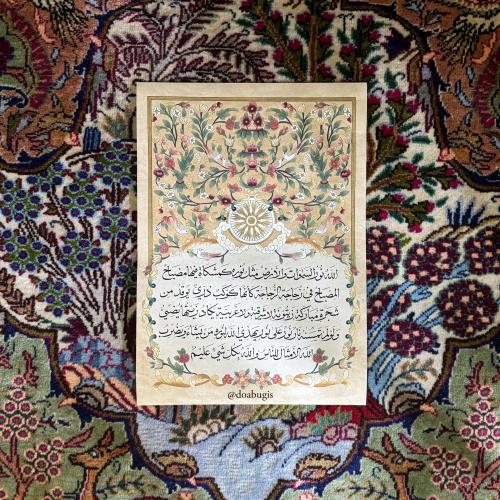 الله نور السموات والأرض مثل نوره كمشكاة فيها مصباح
المصباح في زجاجة الزجاجة كأنها كوكب دري يوقد من
شجرة مباركة زيتونة لا شرقية ولا غربية يكاد زيتها يضيئ
ولو لم تمسسه نار نور على نور يهدي الله لنوره من يشاء ويضرب
الله الأمثال للناس والله بكل شيئ عليم
@doabugis